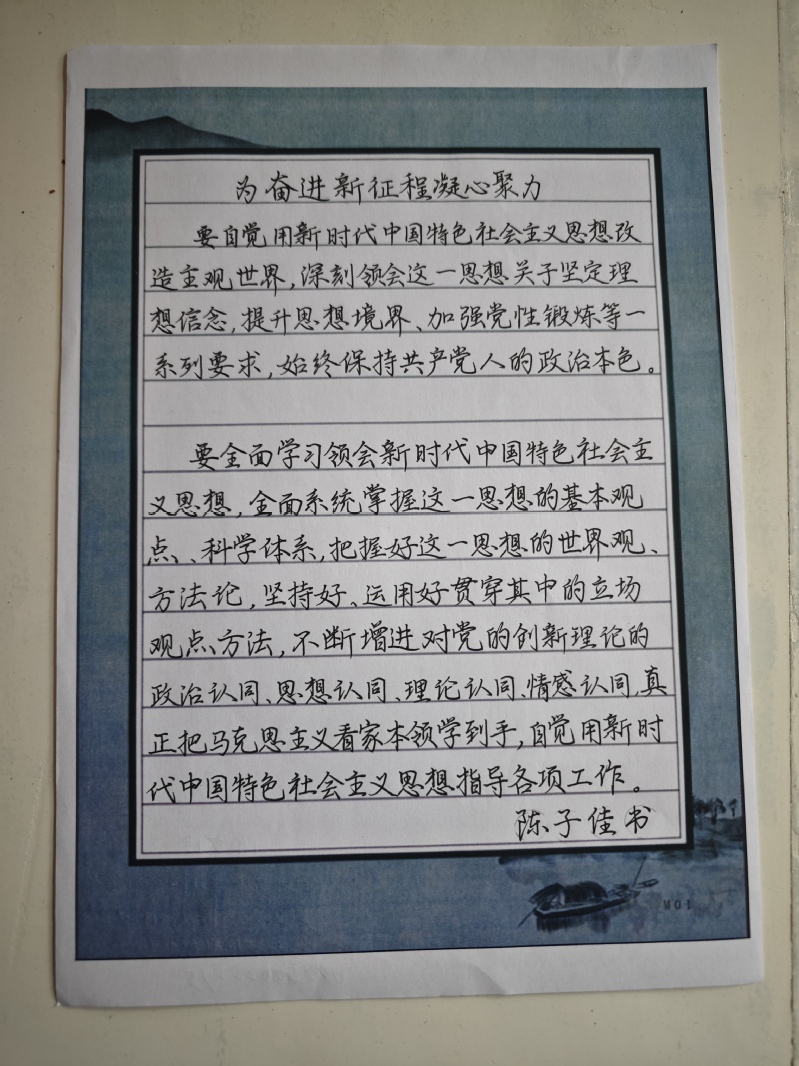 为奋进新征程凝心聚力
要自觉用新时代中国特色社会主义思想改
造主观世界,深刻领会这一思想关于坚定理
想信念,提升思想境界、加强党性锻炼等一
系列要求,始终保持共产党人的政治本色。
要全面学习领会新时代中国特色社会主
义思想,全面系统掌握这一思想的基本观
点、科学体系,把握好这一思想的世界观、
方法论,坚持好、运用好贯穿其中的立场
观点、方法,不断增进对党的创新理论的
政治认同、思想认同、理论认同、情感认同,真
正把马克思主义看家本领学到手,自觉用新时
代中国特色社会主义思想指导各项工作。
陈子佳书
M01